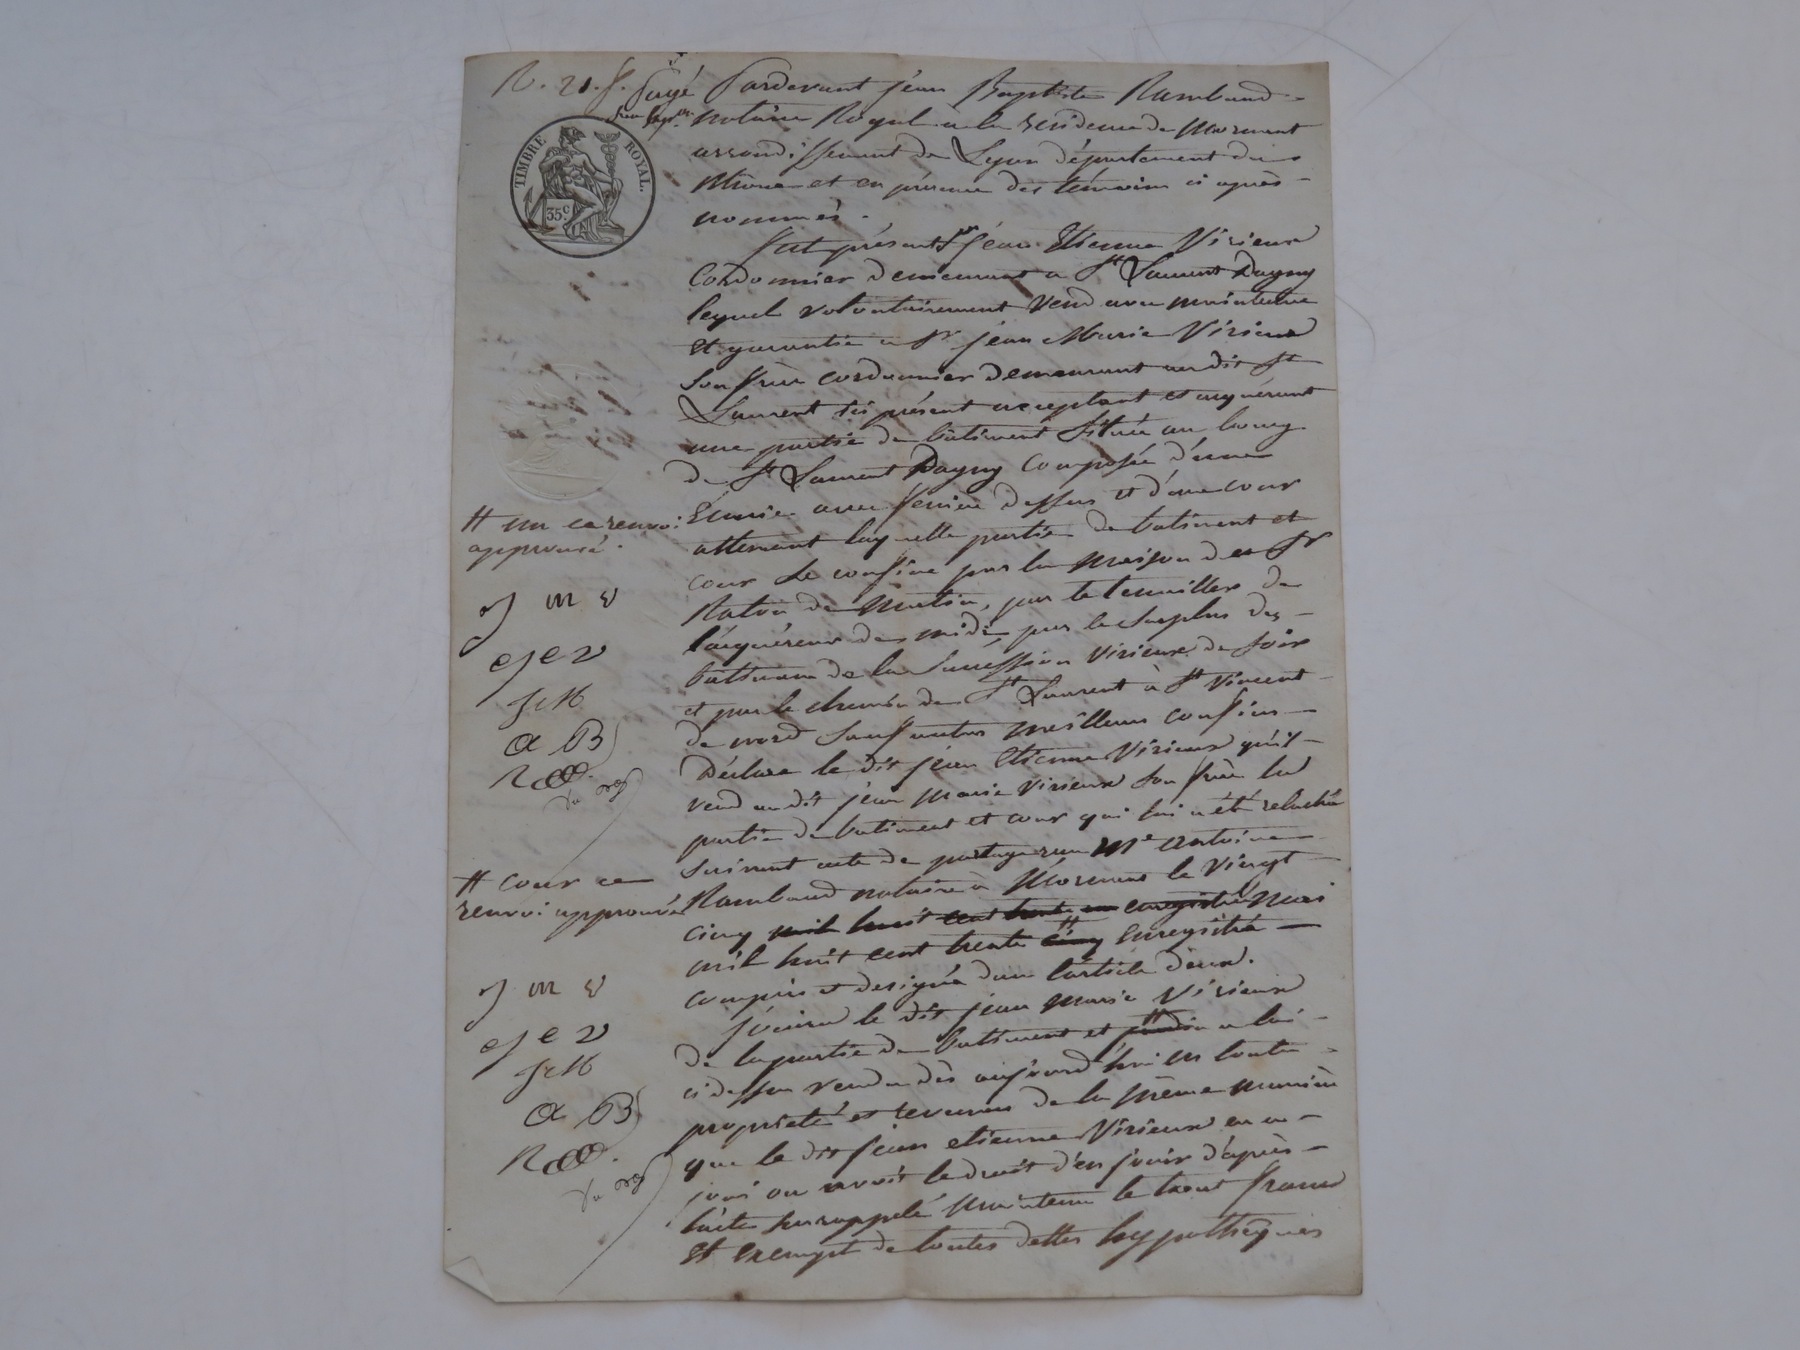 R. 21. f. Payé
TIMBRE ROYAL.
35c.
Pardevant jean Baptiste Rambaud
notaire Royal à la residence de Mornant
arrondissement de Lyon département du
Rhône et en présence des témoins ci après
nommés.
fut présent Sr jean Etienne Virieux
Cordonnier demeurant a St Laurent Dagny
lequel volontairement vend avec maintenue
et garantie a Sr jean Marie Virieux
Son frère cordonnier demeurant au dit St
Laurent ici présent acceptant et acquérant
une partie de bâtiment Située au bourg
de St Laurent Dagny Composée d'une
Ecurie avec feniere dessus et d'une cour
attenant laquelle partie de batiment et
cour Se confine par la maison de Sr
Raton de matin, par le tenaillier de
l'acquéreur de midi, par le Surplus des
batimens de la Succession Virieux de Soir
et par le chemin de St Laurent à St Vincent
de nord Sauf autres meilleurs confins
Déclare le dit jean Etienne Virieux qu'il
vend au dit jean Marie Virieux Son frère la
partie de batiment et cour qui lui a été relachée
Suivant acte de partage reçu Me antoine
Rambaud notaire à Mornant le Vingt
cinq mil huit cent trente un enregistré mai
mil huit cent trente cinq Enregistré
compris et designée dans l'article deux.
Jouira le dit jean Marie Virieux
de la partie de batiment et jardin a lui
ci dessus vendu dès aujourd'hui en toute
propriété et revenus de la même manière
que le dit jean etienne Virieux en a
joui ou avoit le droit d'en jouir d'après
l'acte Surrappelé Maintenu le tout franc
Et Exempt de toutes dettes hypothèques
# un ce renvoi
approuvé.
J M V
J E V
A B
# Cour ce
renvoi approuvé
J M V
J E V
A B